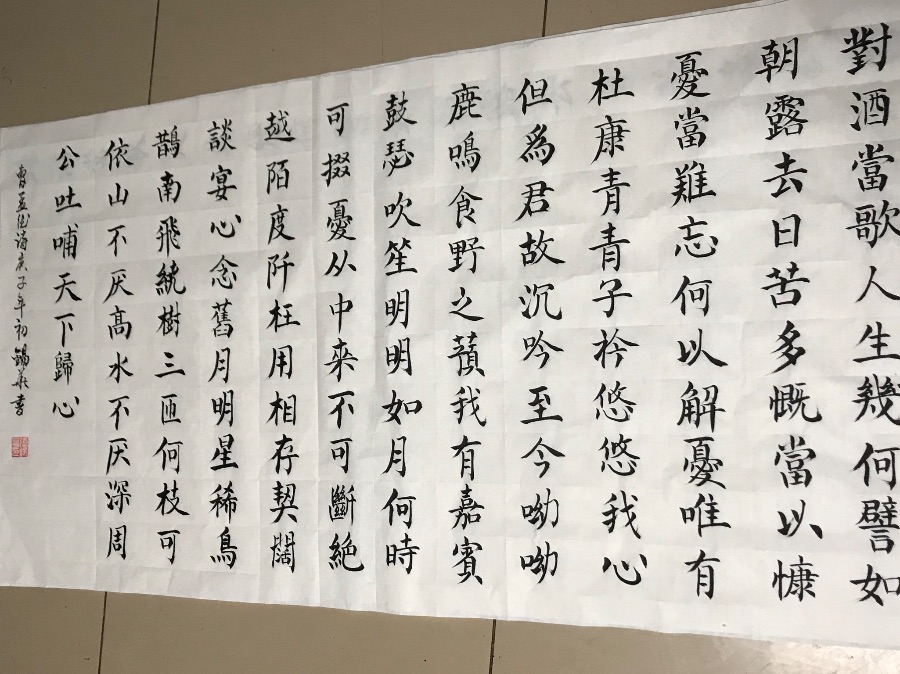 對酒當歌人生幾何譬如
朝露去日苦多慨當以慷
憂當難忘何以解憂唯有
杜康青青子衿悠悠我心
但爲君故沉吟至今呦呦
鹿鳴食野之蘋我有嘉賓
鼓瑟吹笙明明如月何時
可掇憂从中来不可斷絶
越陌度阡枉用相存契闊
談宴心念舊月明星稀鳥
鵲南飛繞樹三匝何枝可
依山不厌高水不厌深周
公吐哺天下歸心
曹孟德詩庚子年初書